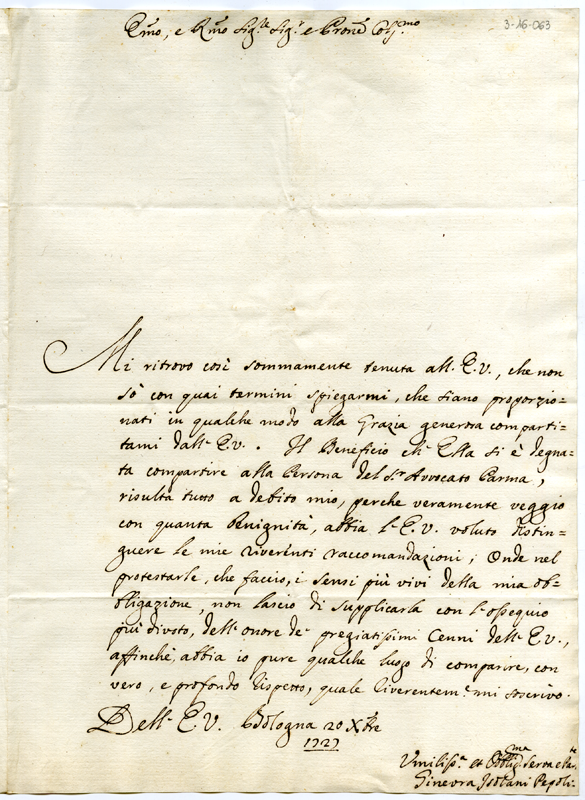 3-16-063
Emo, e Rmo Sig.re Sig.r e Prone Col.mo
Mi ritrovo così sommamente tenuta all'E.V., che non
sò con quai termini spiegarmi, che siano proporzio=
nati in qualche modo alla Grazia generosa comparti=
tami dall'E.V. . Il Beneficio ch'Ella si è degna=
ta compartire alla Persona del S.r Avvocato Parma,
risulta tutto a debito mio, perche veramente veggio
con quanta Benignità, abbia l'E.V. voluto distin=
guere le mie riverenti raccomandazioni; Onde nel
protestarle, che faccio, i sensi più vivi della mia ob=
bligazione, non lascio di supplicarla con l'ossequio
più divoto, dell'onore de' pregiatissimi Cenni dell'E.V.,
affinche, abbia io pure qualche luogo di comparire, con
vero, e profondo rispetto, quale riverentem.e mi soscrivo.
Dell'E.V. Bologna 20 Xbre
1727
Umiliss.a et Obblig.ma Serva
Ginevra Isolani Pepoli